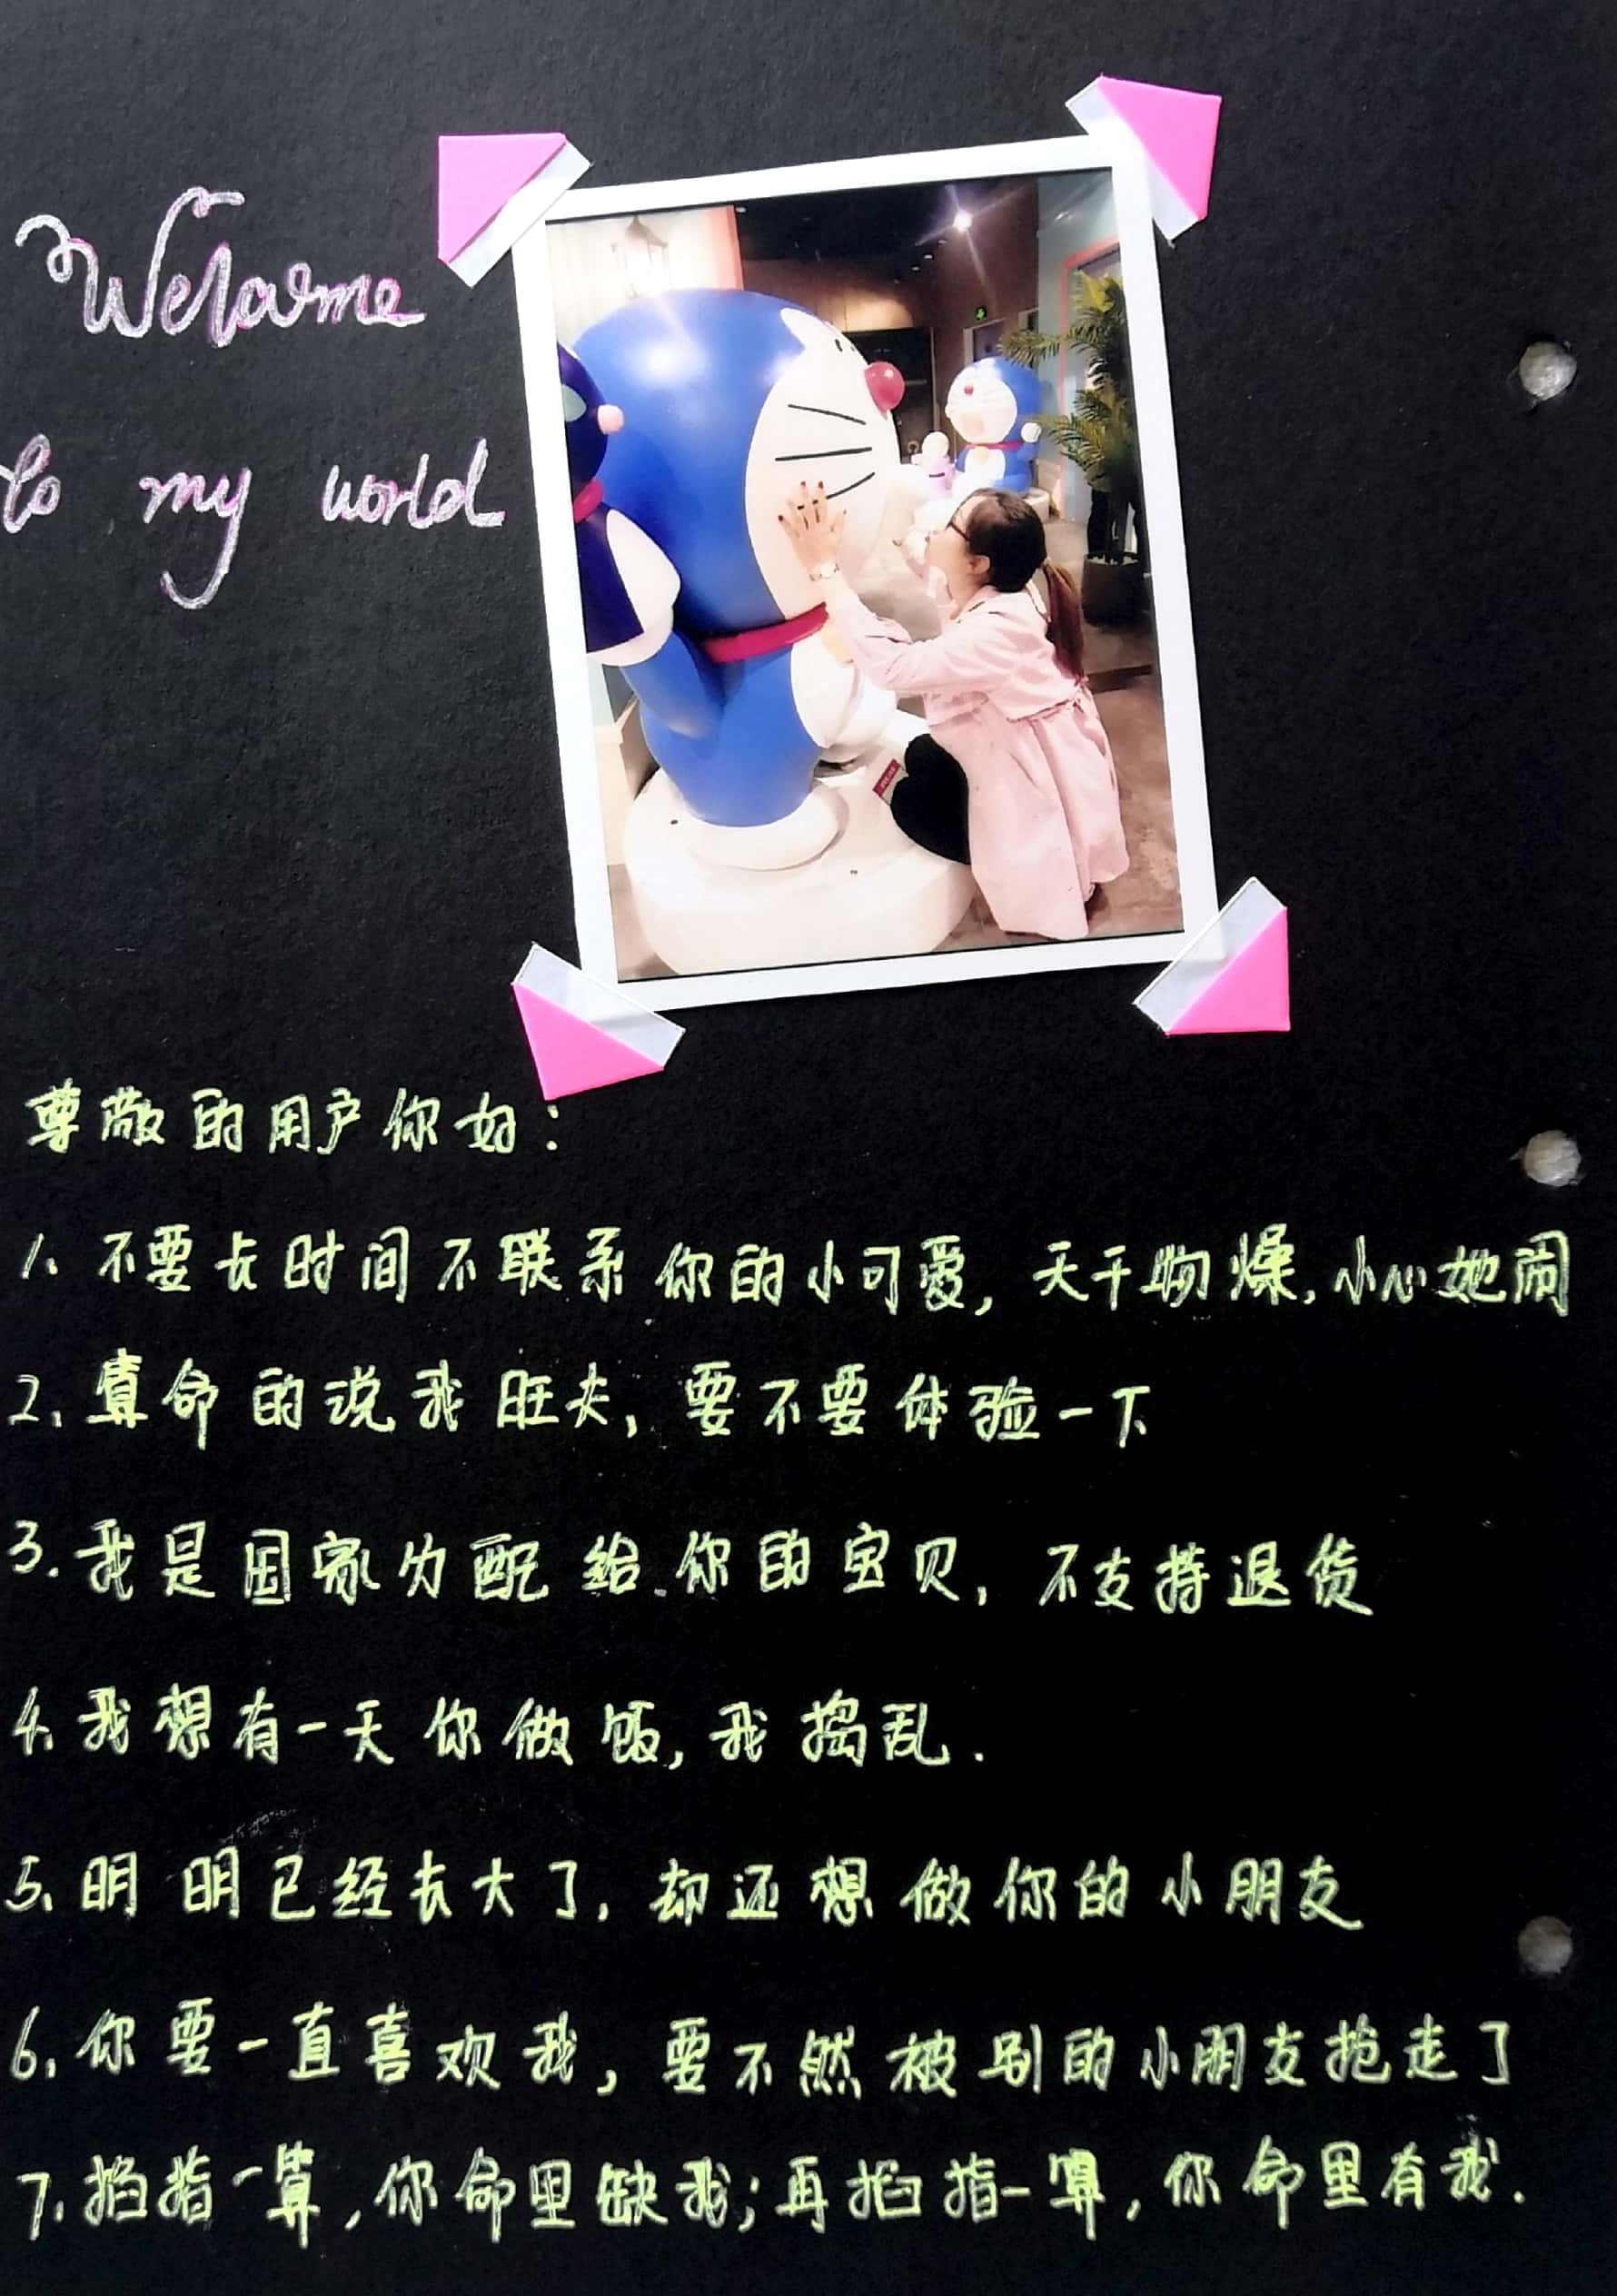 Welcome
to my world
尊敬的用户你好：
1. 不要长时间不联系你的小可爱, 天干物燥, 小心她闹
2. 算命的说我旺夫, 要不要体验一下
3. 我是国家分配给你的宝贝, 不支持退货
4. 我想有一天你做饭, 我捣乱.
5. 明明已经长大了, 却还想做你的小朋友
6. 你要一直喜欢我, 要不然被别的小朋友抱走了
7. 掐指一算, 你命里缺我; 再掐指一算, 你命里有我.